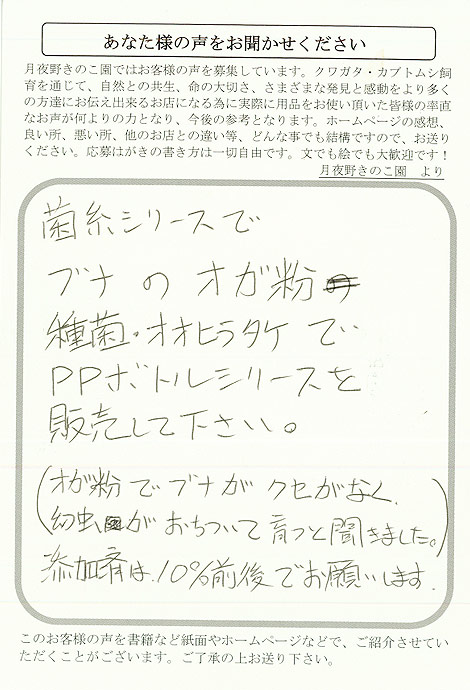 あなた様の声をお聞かせください
月夜野きのこ園ではお客様の声を募集しています。クワガタ・カブトムシ飼
育を通じて、自然との共生、命の大切さ、さまざまな発見と感動をより多く
の方達にお伝え出来るお店になる為に実際に用品をお使い頂いた皆様の率直
なお声が何よりの力となり、今後の参考となります。ホームページの感想、
良い所、悪い所、他のお店との違い等、どんな事でも結構ですので、お送り
ください。応募はがきの書き方は一切自由です。文でも絵でも大歓迎です！
月夜野きのこ園　より
菌糸シリースで
ブナ の オガ粉
種菌・オオヒラタケ で
PPボトルシリースを
販売して下さい。
(オガ粉でブナがクセがなく、
幼虫がおちついて育つと聞きました。)
添加済は、10%前後でお願いします.
このお客様の声を書籍など紙面やホームページなどで、ご紹介させてい
ただくことがございます。ご了承の上お送り下さい。